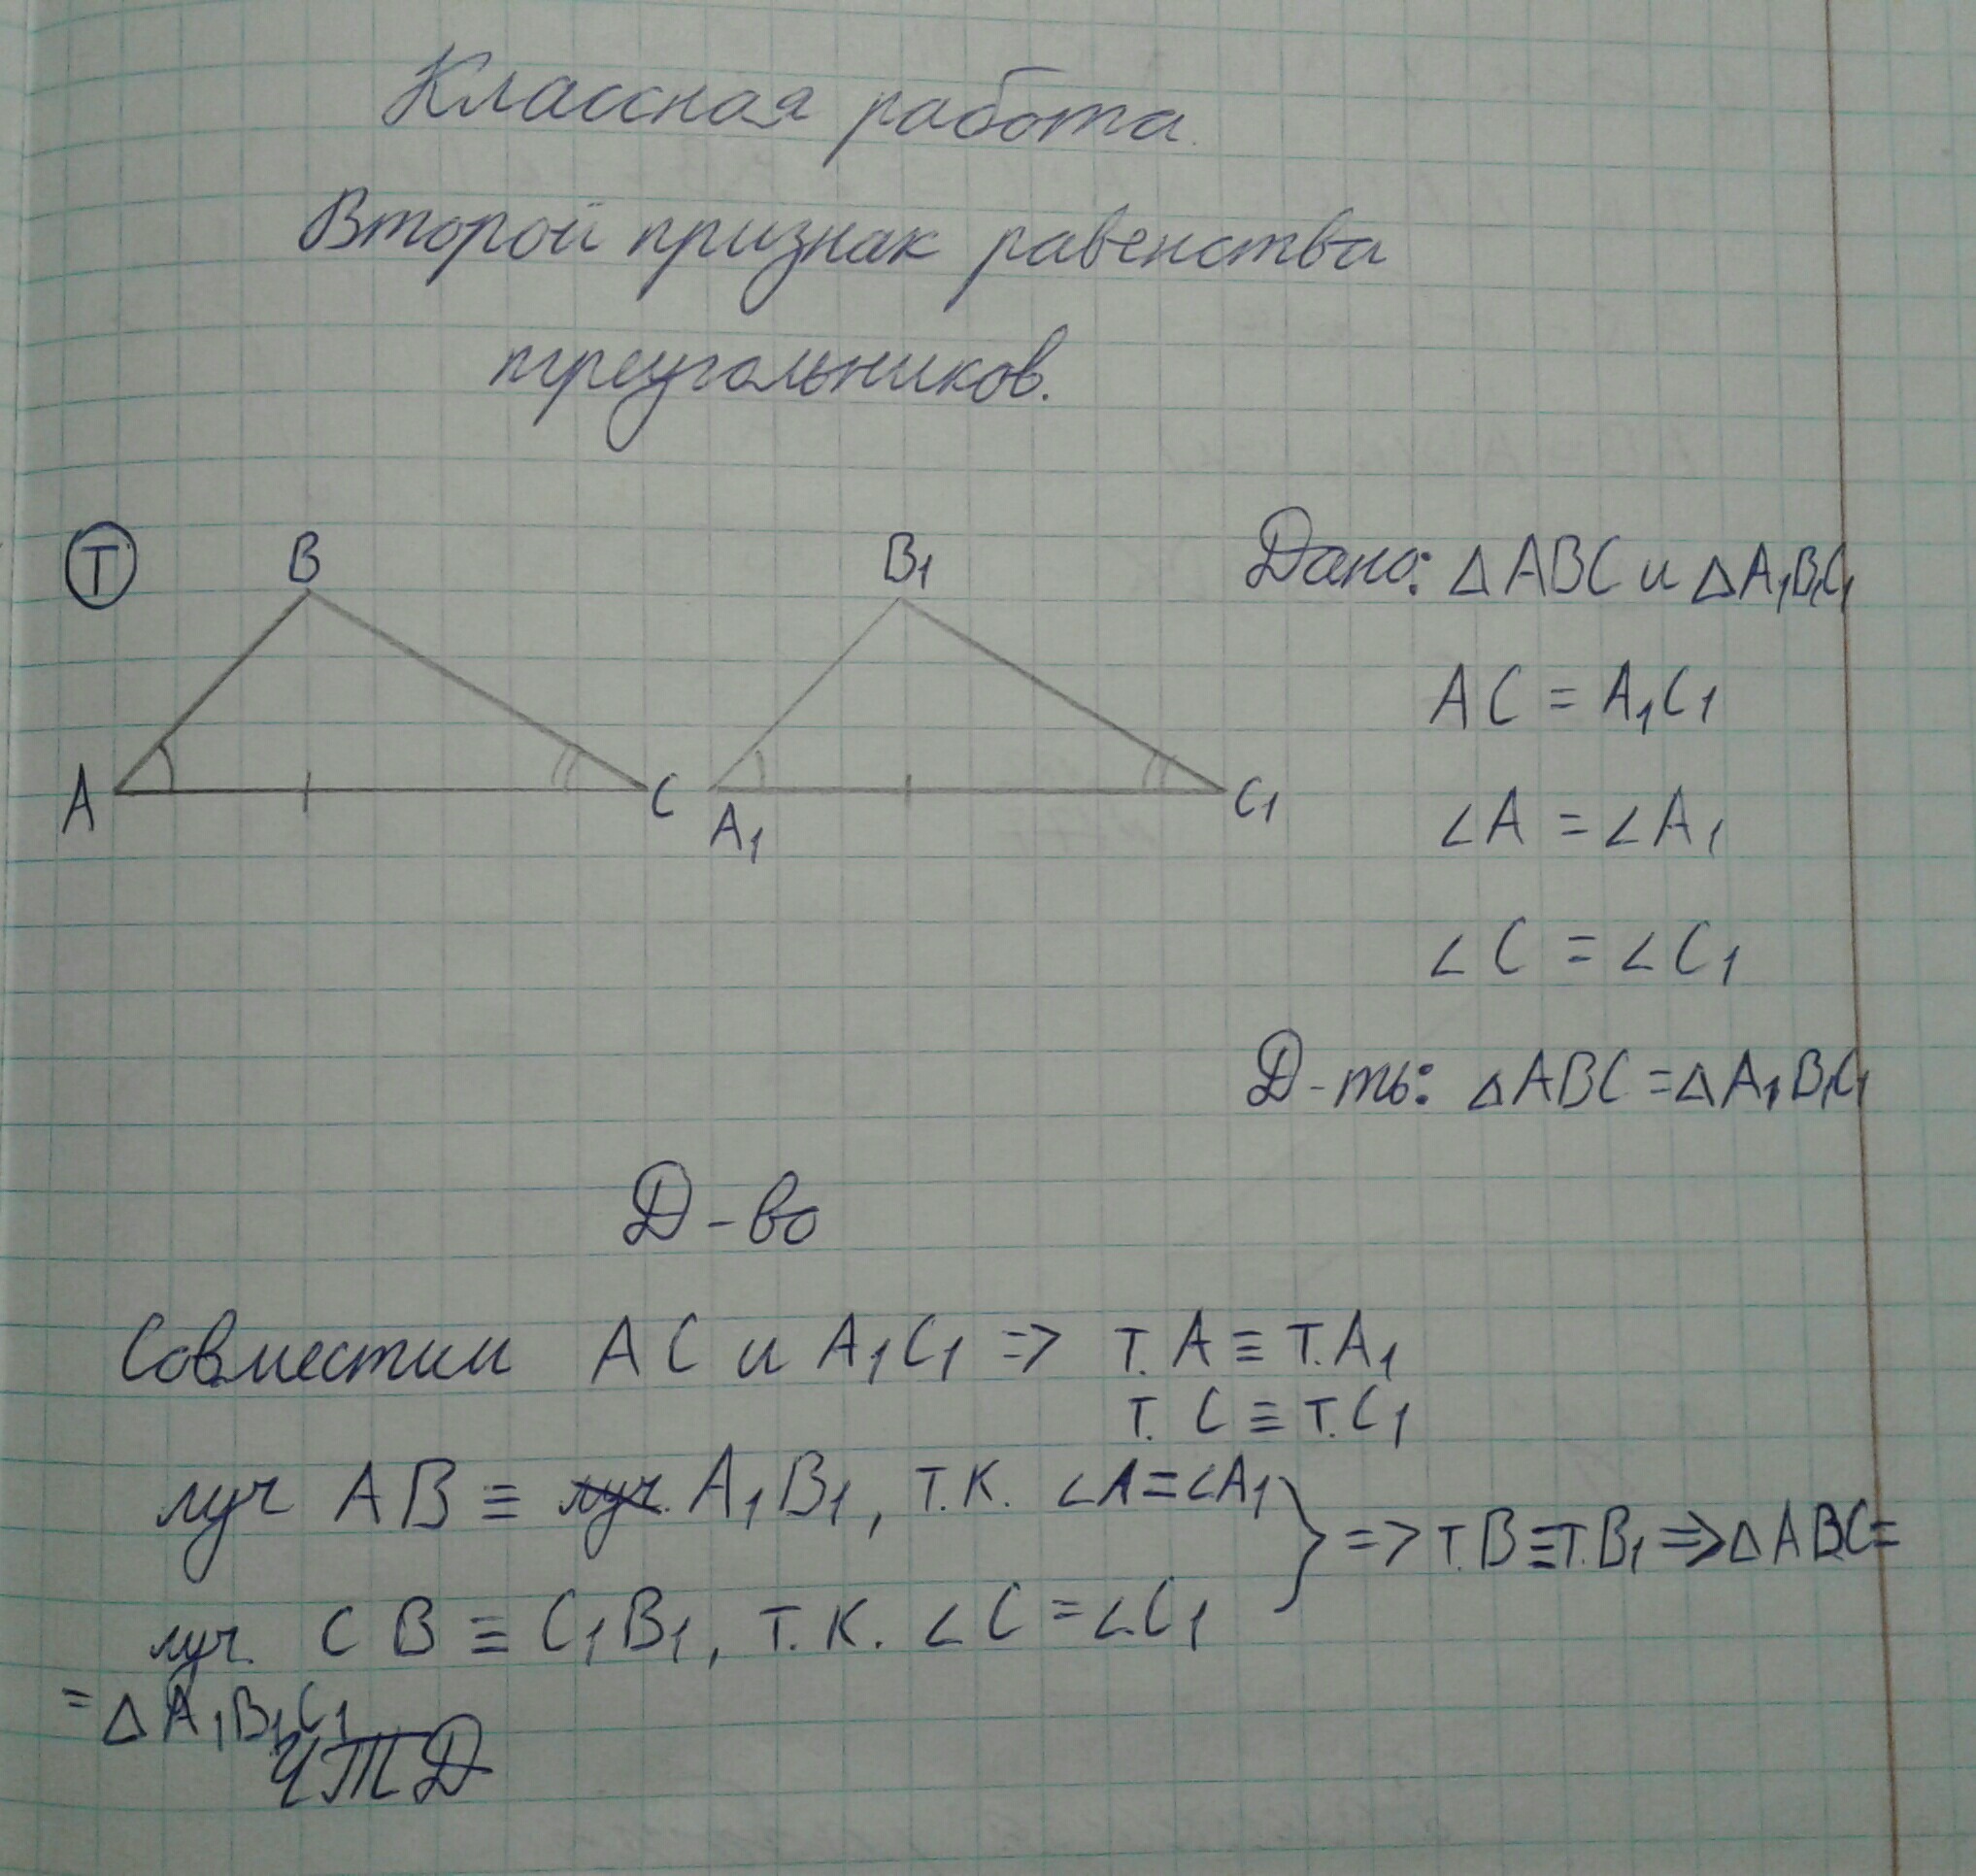 Классная работа.
Второй признак равенства
треугольников.
Т
B
B₁
Дано: △ABC и △A₁B₁C₁
A
C
A₁
C₁
AC = A₁C₁
∠A = ∠A₁
∠C = ∠C₁
Д-ть: △ABC = △A₁B₁C₁
Д-во
Совместим AC и A₁C₁ => т. A ≡ т. A₁
т. C ≡ т. C₁
луч AB ≡ луч A₁B₁, т.к. ∠A = ∠A₁
} => т. B ≡ т. B₁ => △ABC =
луч CB ≡ C₁B₁, т.к. ∠C = ∠C₁
= △A₁B₁C₁
ЧТД